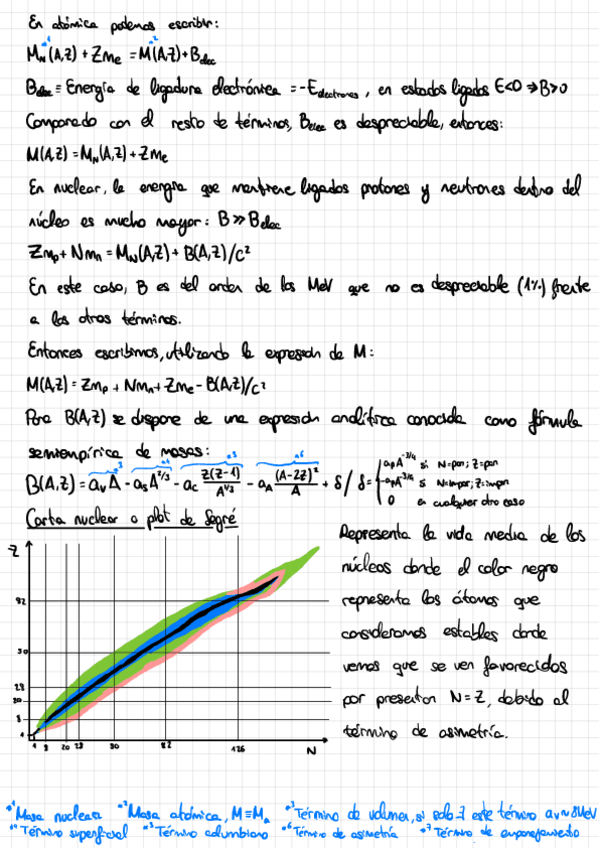 En atómica podemos escribir:
*1 *2
M_N(A,Z) + Zm_e = M(A,Z) + B_elec
B_elec ≡ Energía de ligadura electrónica = -E_electrones, en estados ligados E<0 ⇒ B>0
Comparado con el resto de términos, B_elec es despreciable, entonces:
M(A,Z) = M_N(A,Z) + Zm_e
En nuclear, la energía que mantiene ligados protones y neutrones dentro del
núcleo es mucho mayor: B ≫ B_elec
Zm_p + Nm_n = M_N(A,Z) + B(A,Z)/c²
En este caso, B es del orden de los MeV que no es despreciable (1%) frente
a los otros términos.
Entonces escribimos, utilizando la expresión de M:
M(A,Z) = Zm_p + Nm_n + Zm_e - B(A,Z)/c²
Para B(A,Z) se dispone de una expresión analítica conocida como fórmula
semiempírica de masas:
*3 *5 *6
B(A,Z) = a_v A - a_s A^{2/3} - a_c Z(Z-1)/A^{1/3} - a_A (A-2Z)²/A + δ / δ = { a_p A^{-3/4} si N=par; Z=par
-a_p A^{-3/4} si N=impar; Z=impar
0 en cualquier otro caso
Carta nuclear o plot de Segré
Z
82
50
28
20
8
8 20 28 50 82 126 N
Representa la vida media de los
núcleos donde el color negro
representa los átomos que
consideramos estables donde
vemos que se ven favorecidos
por presentar N=Z, debido al
término de asimetría.
*1 Masa nuclear *2 Masa atómica, M≡M_a *3 Término de volumen, si solo ∃ este término a_v ~ 8MeV
*4 Término superficial *5 Término culombiano *6 Término de asimetría *7 Término de emparejamiento